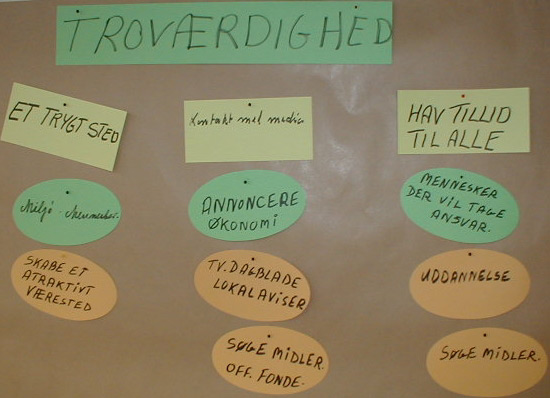 TROVÆRDIGHED
ET TRYGT STED
Kontakt med media
HAV TILLID
TIL ALLE
Miljø - Mennesker.
ANNONCERE
ØKONOMI
MENNESKER
DER VIL TAGE
ANSVAR.
SKABE ET
ATRAKTIVT
VÆRESTED
TV. DAGBLADE
LOKALAVISER
UDDANNELSE
SØGE MIDLER.
OFF. FONDE.
SØGE MIDLER.